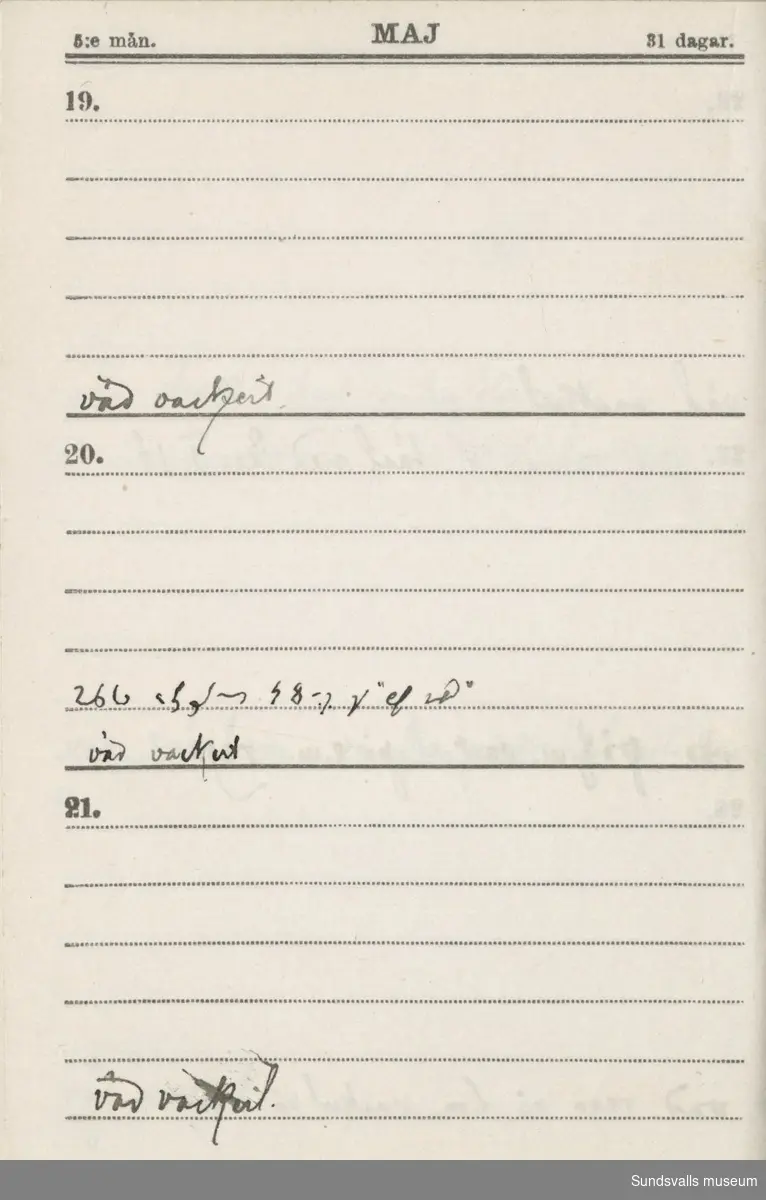 5:e mån. MAJ 31 dagar.
19.
väd vackert.
20.
266
väd vackert
21.
väd vackert.
Sundsvalls museum